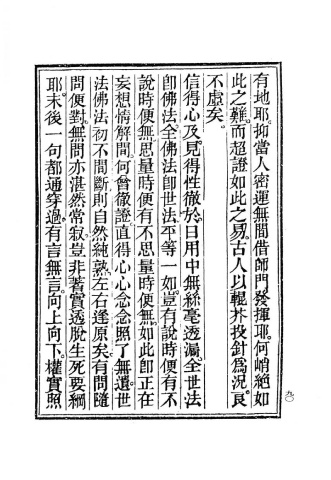 有地耶。抑當人密運無間借師門發揮耶。何峭絶如
此之難。而超證如此之易。古人以輥芥投針爲況。良
不虛矣。
信得心及。見得性徹。於日用中無絲毫透漏。全世法
卽佛法。全佛法卽世法。平等一如。豈有說時便有。不
說時便無。思量時便有。不思量時便無。如此卽正在
妄想情解間。何曾徹證。直得心心念念照了無遺。世
法佛法初不間斷。則自然純熟。左右逢原矣。有問隨
問便對。無問亦湛然常寂。豈非著實透脫生死要綱
耶。末後一句都通穿過。有言無言。向上向下。權實照
九〇